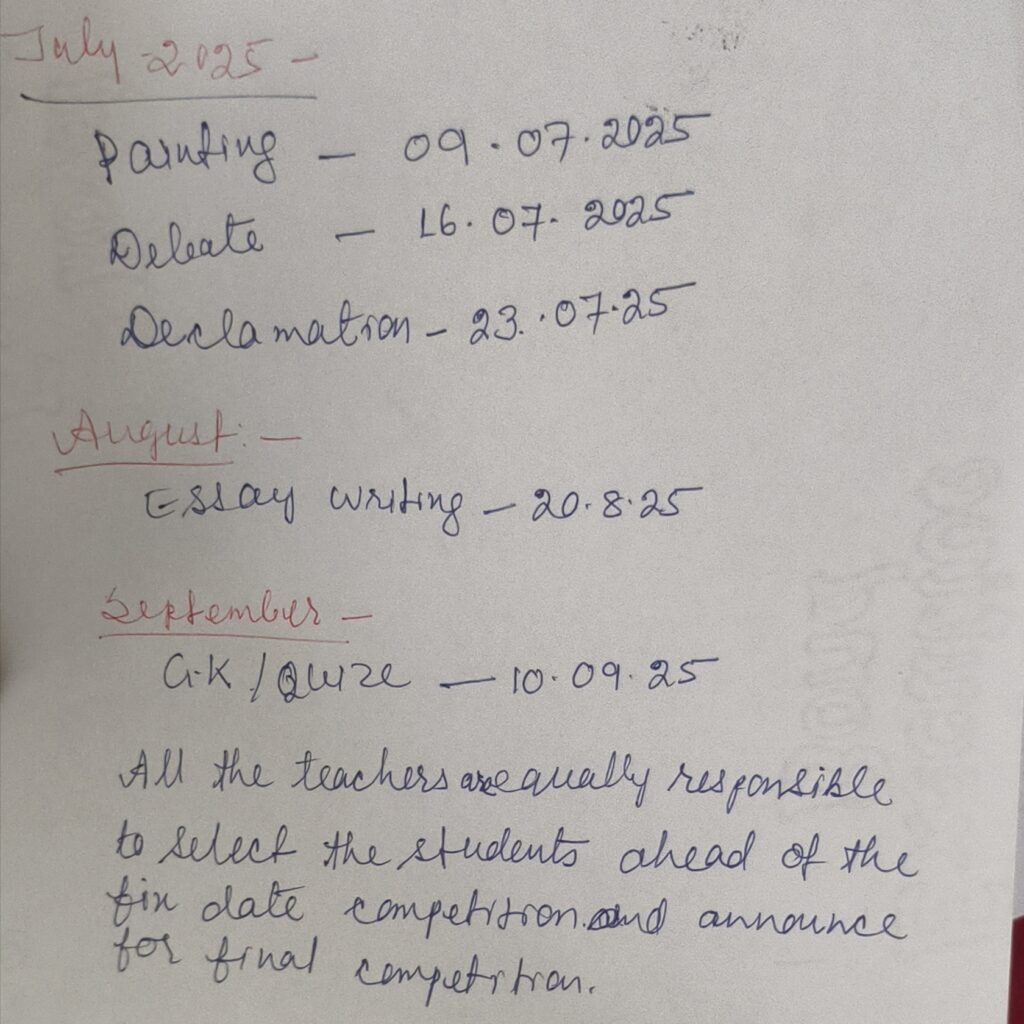 July-2025-
Painting - 09.07.2025
Debate - 16.07.2025
Declamation - 23.07.25
August:-
Essay writing - 20.8.25
September -
G.K/Quize - 10.09.25
All the teachers are equally responsible
to select the students ahead of the
fix date competition.and announce
for final competition.